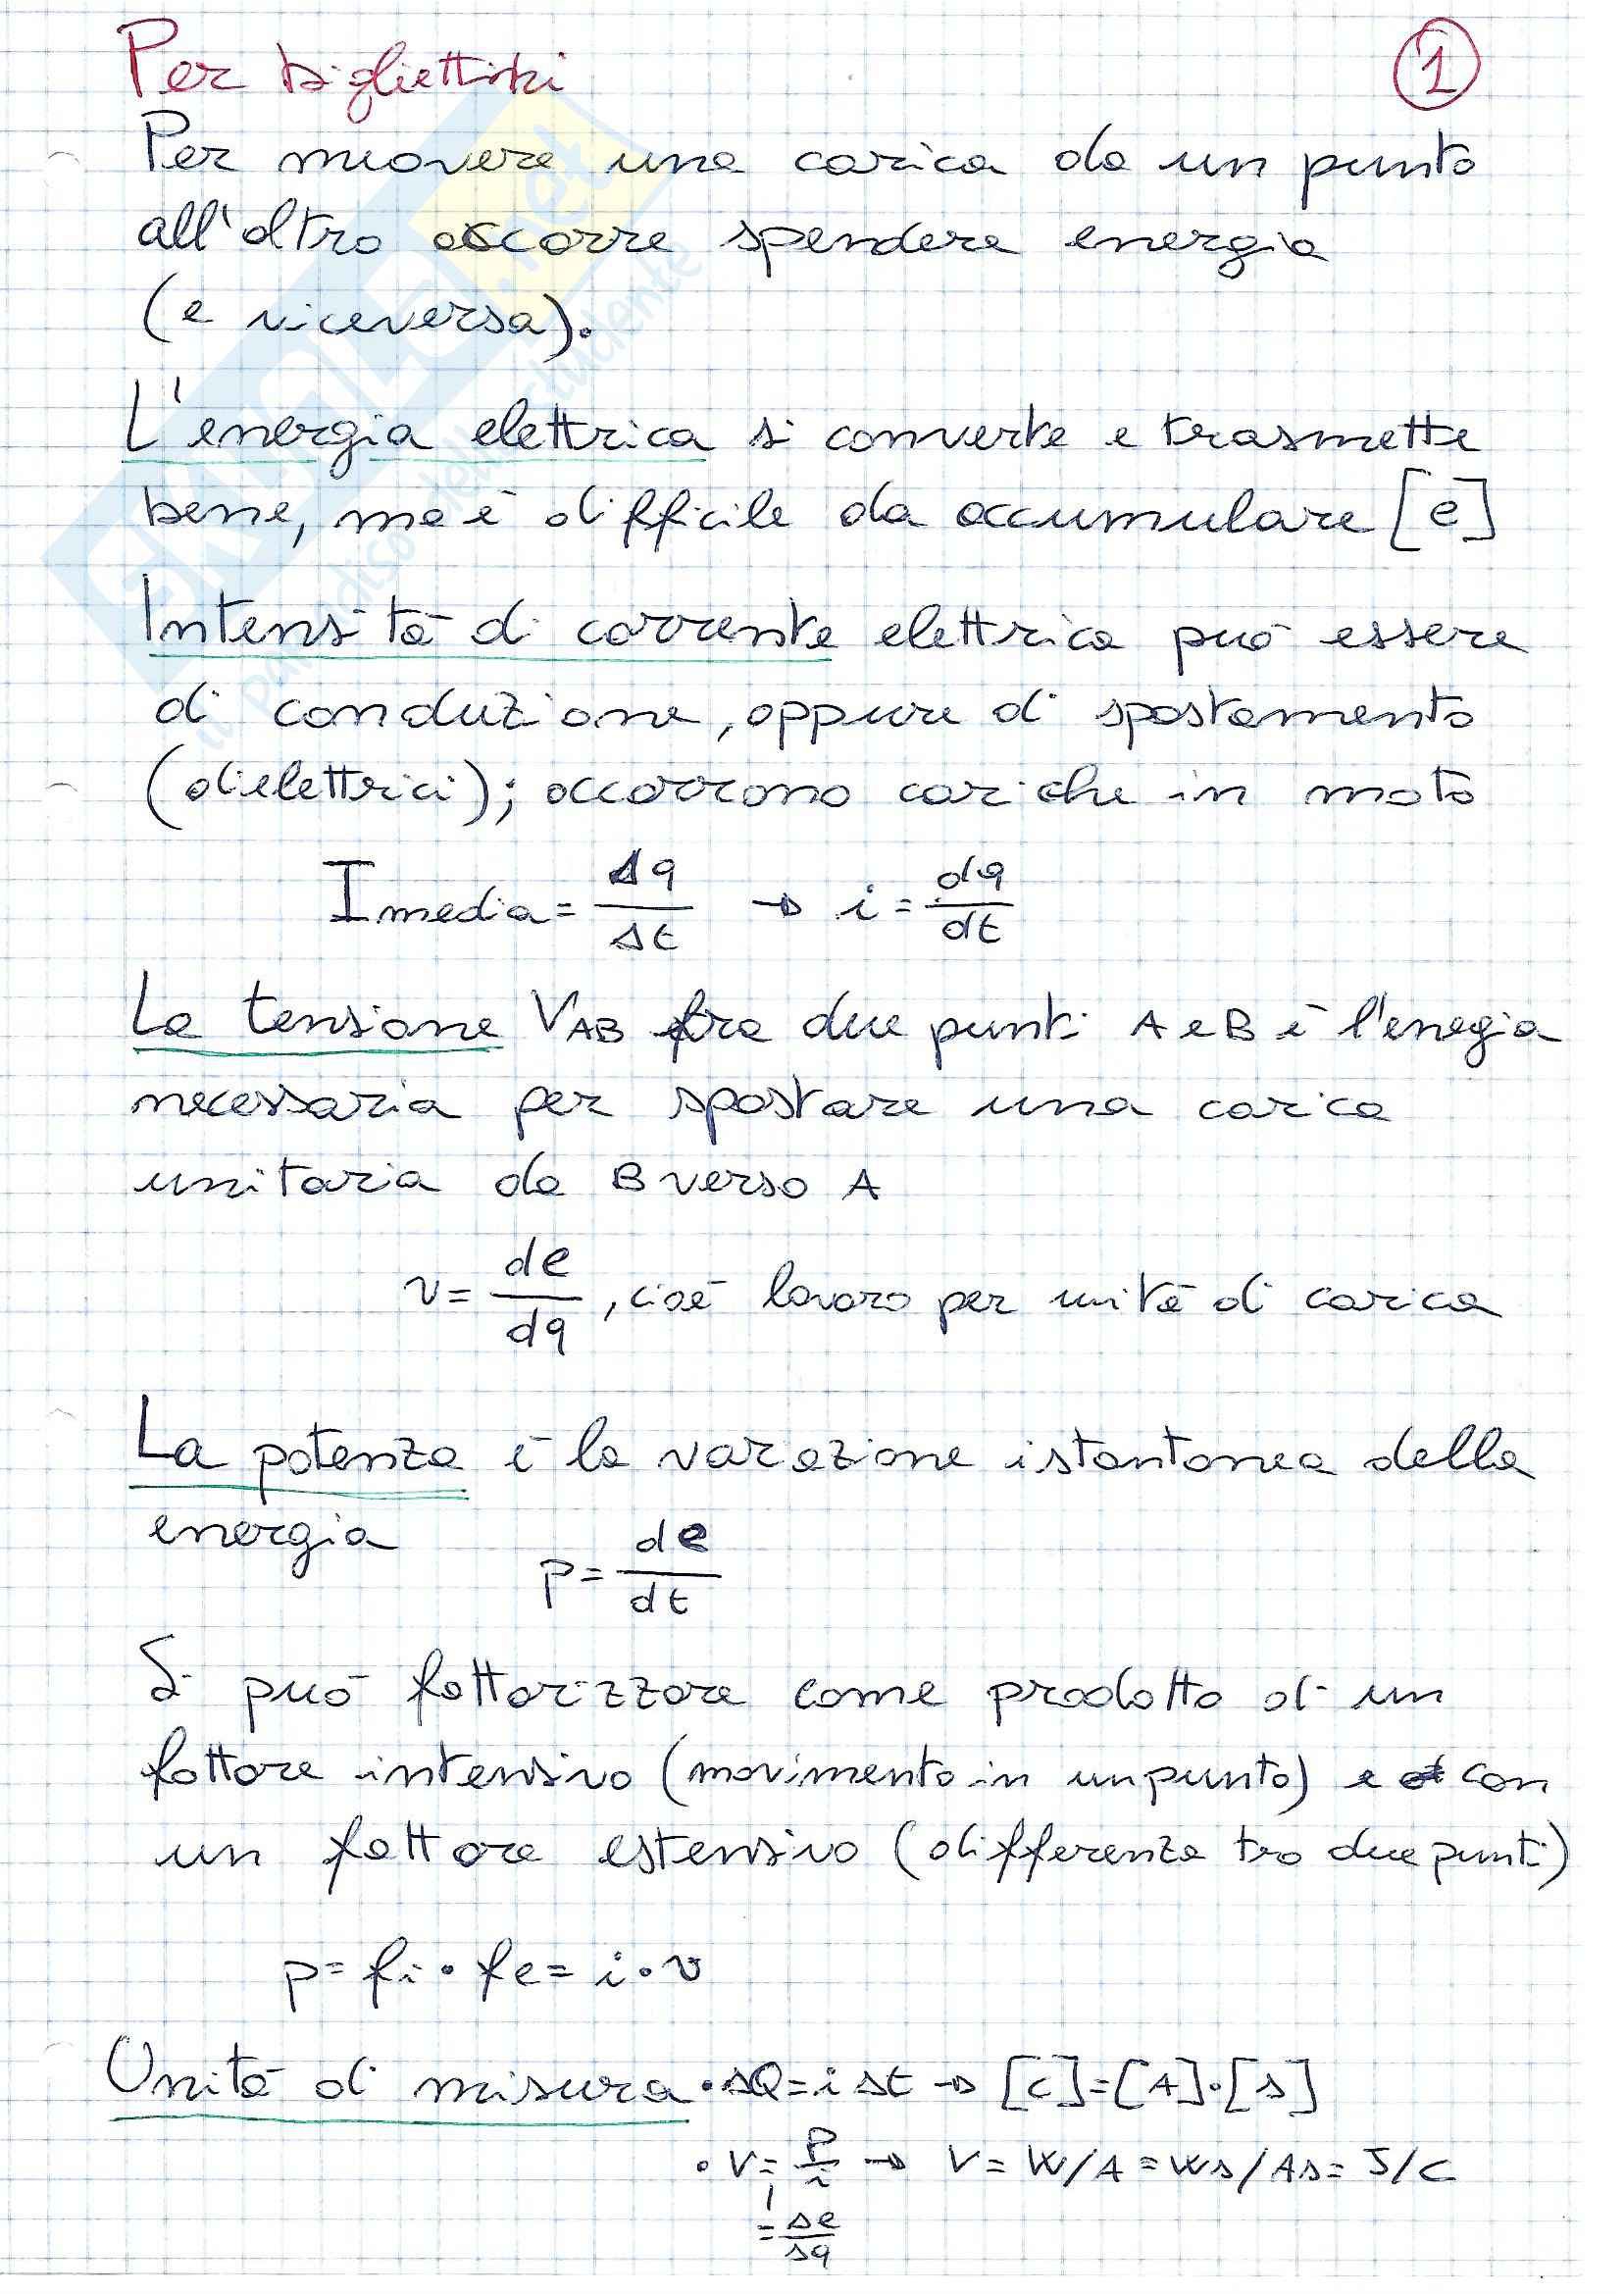 Per bigliettini
1
Per muovere una carica da un punto
all'altro occorre spendere energia
(e viceversa).
L'energia elettrica si converte e trasmette
bene, ma è difficile da accumulare [e]
Intensità di corrente elettrica può essere
di conduzione, oppure di spostamento
(dielettrici); occorrono cariche in moto
Imedia = Δq/Δt → i = dq/dt
La tensione VAB fra due punti A e B è l'enegia
necessaria per spostare una carica
unitaria da B verso A
v = de/dq, cioè lavoro per unità di carica
La potenza è la varazione istantanea della
energia
p = de/dt
Si può fattorizzare come prodotto di un
fattore intensivo (movimento in un punto) e con
un fattore estensivo (differenza tra due punti)
p = fi · fe = i · v
Unità di misura · ΔQ = i Δt → [C] = [A]·[s]
· V = P/i → V = W/A = Ws/As = J/C
= Δe/Δq
SKUOLA.net
il paradiso dello studente